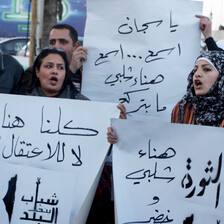 يا سجان
اسمع... اسمع
هناء شلبي
ما بتركع
كلنا هنا
لا للاعتقال
شباب
البلد
هناء
شلبي
و
الثورة